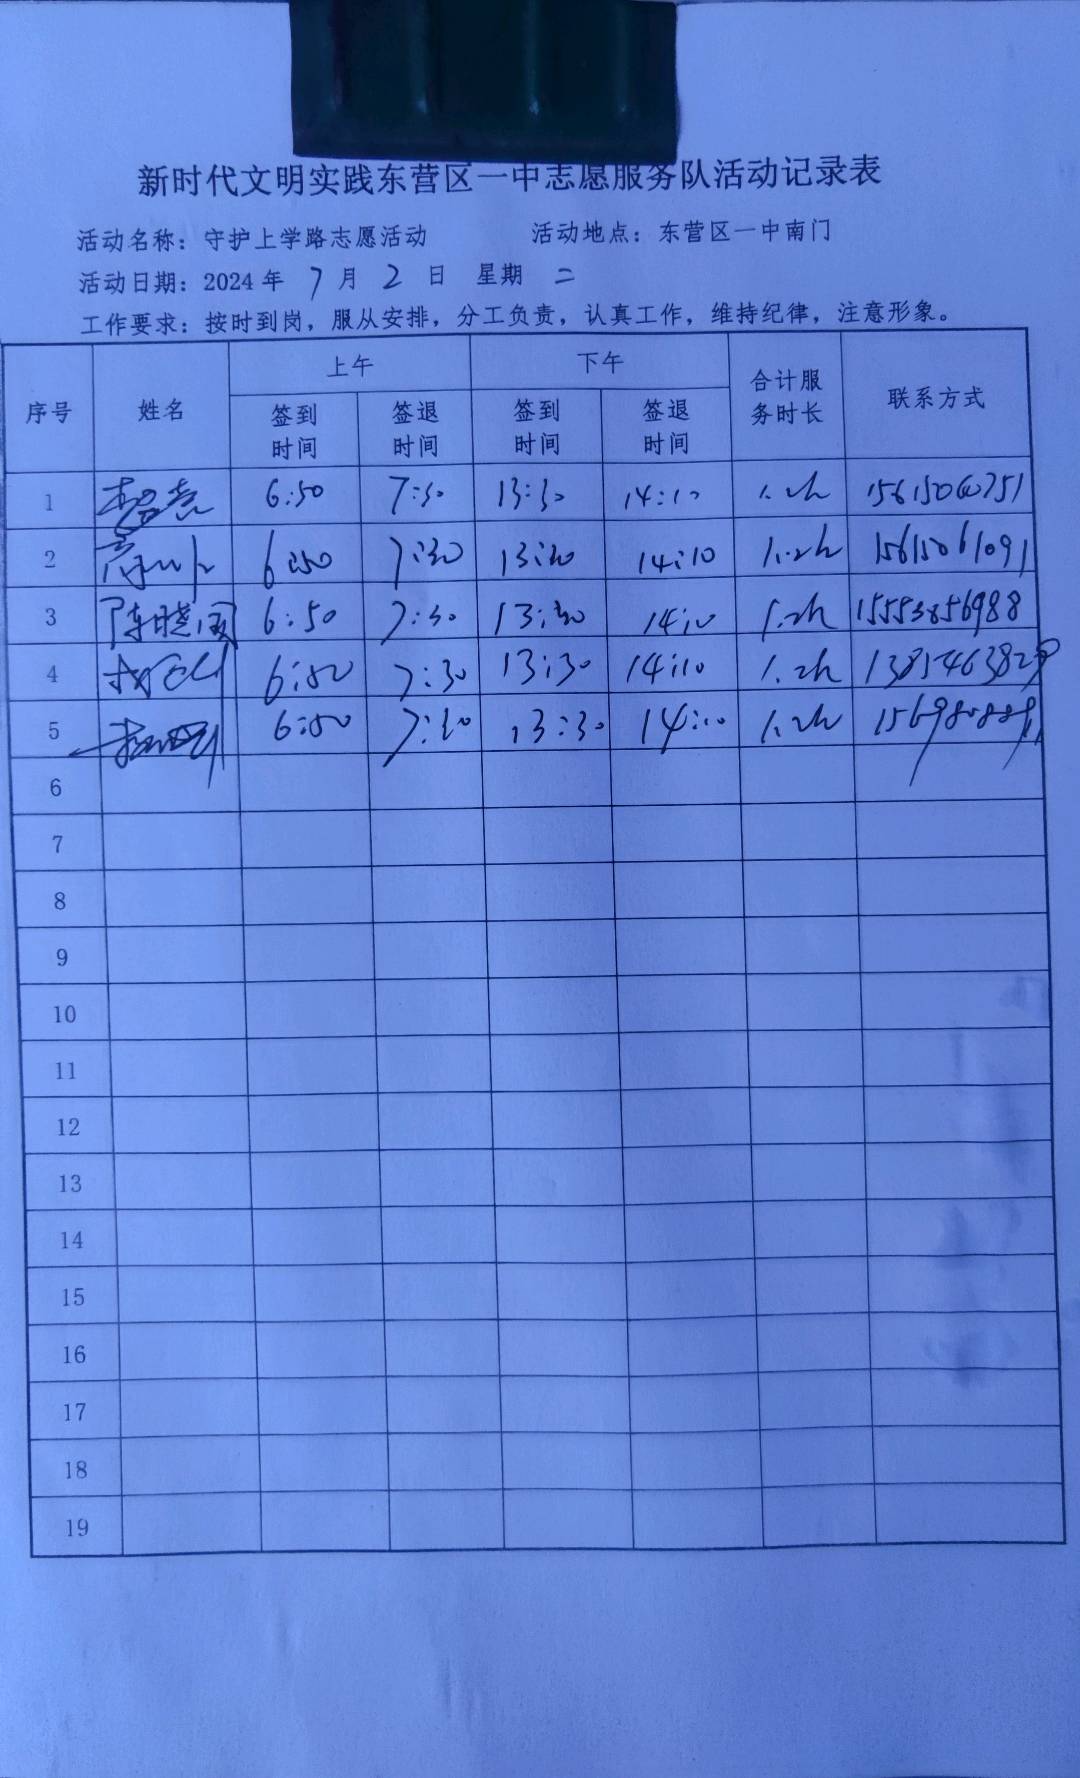 新时代文明实践东营区一中志愿服务队活动记录表
活动名称：守护上学路志愿活动 活动地点：东营区一中南门
活动日期：2024年 7月 2日 星期 二
工作要求：按时到岗，服从安排，分工负责，认真工作，维持纪律，注意形象。
序号 姓名 上午 下午 合计服务时长 联系方式
签到时间 签退时间 签到时间 签退时间
1 6:50 7:30 13:30 14:10 1.2h
2 6:50 7:30 13:30 14:10 1.2h 15615061091
3 6:50 7:30 13:30 14:10 1.2h 15553856988
4 6:50 7:30 13:30 14:10 1.2h
5 6:50 7:30 13:30 14:10 1.2h
6
7
8
9
10
11
12
13
14
15
16
17
18
19